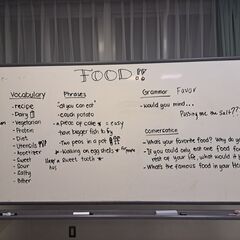 FOOD!!
Vocabulary
- recipe
- Dairy
- Vegetarian
- Protein
- Diet
- Utensils
- appetizer
- Sweet
- Sour
- Salty
- Bitter
Phrases
- "all you can eat"
- couch potato
- a piece of cake = easy
- have bigger fish to fry
- Two peas in a pod
- Walking on egg shells
a sweet tooth
has
Grammar
Favor
- would you mind...
Passing me the salt??
Conversation
- What's your favorite food? Why do
- If you could only eat one food for
rest of your life, what would it
- What's the famous food in your